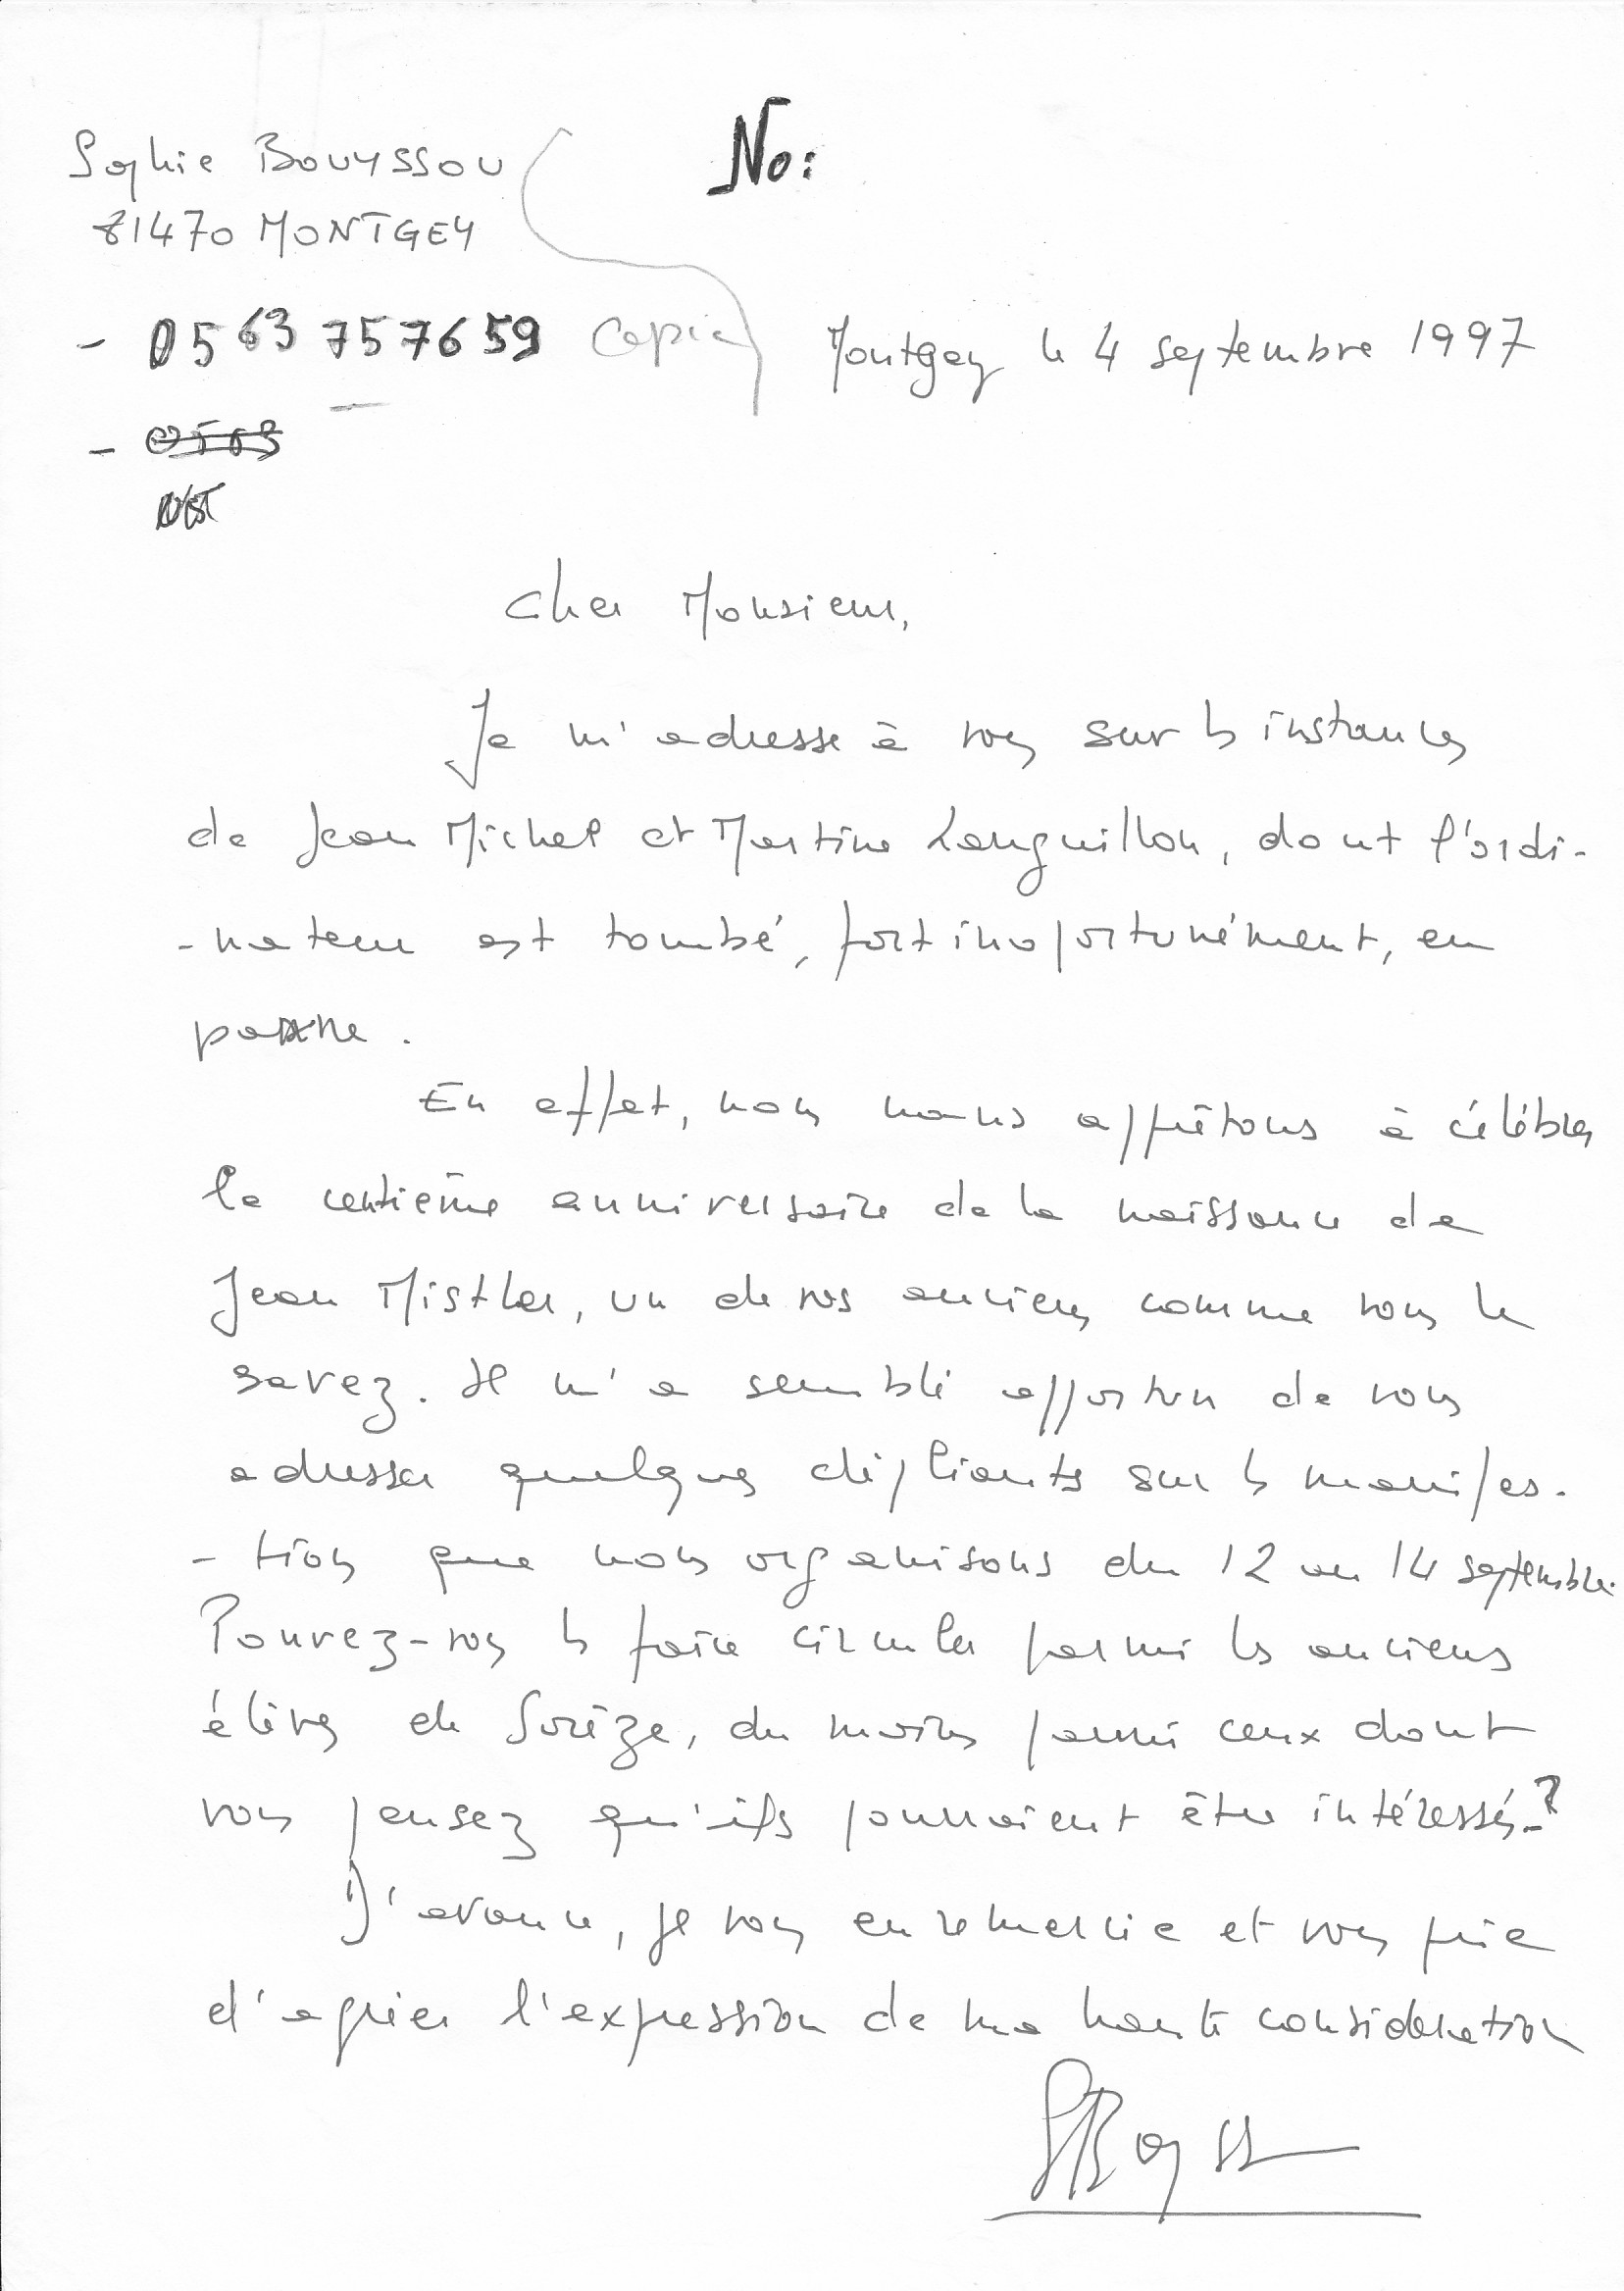 Sophie BOUYSSOU
No:
81470 MONTGEY
- 05 63 75 76 59 Copie
Montgey le 4 septembre 1997
- 0563
Cher Monsieur,
Je m'adresse à vous sur les instances
de Jean Michel et Martine Languillon, dont l'ordi-
-nateur est tombé, fort inopportunément, en
panne.
En effet, nous nous apprêtons à célébrer
le centième anniversaire de la naissance de
Jean Mistler, un de vos anciens comme vous le
savez. Il m'a semblé opportun de vous
adresser quelques dépliants sur les manifes-
-tions que nous organisons du 12 au 14 septembre.
Pouvez-vous les faire circuler parmi les anciens
élèves de Sorèze, du moins parmi ceux dont
vous pensez qu'ils pourraient être intéressés ?
D'avance, je vous en remercie et vous prie
d'agréer l'expression de ma haute considération
SBouyss